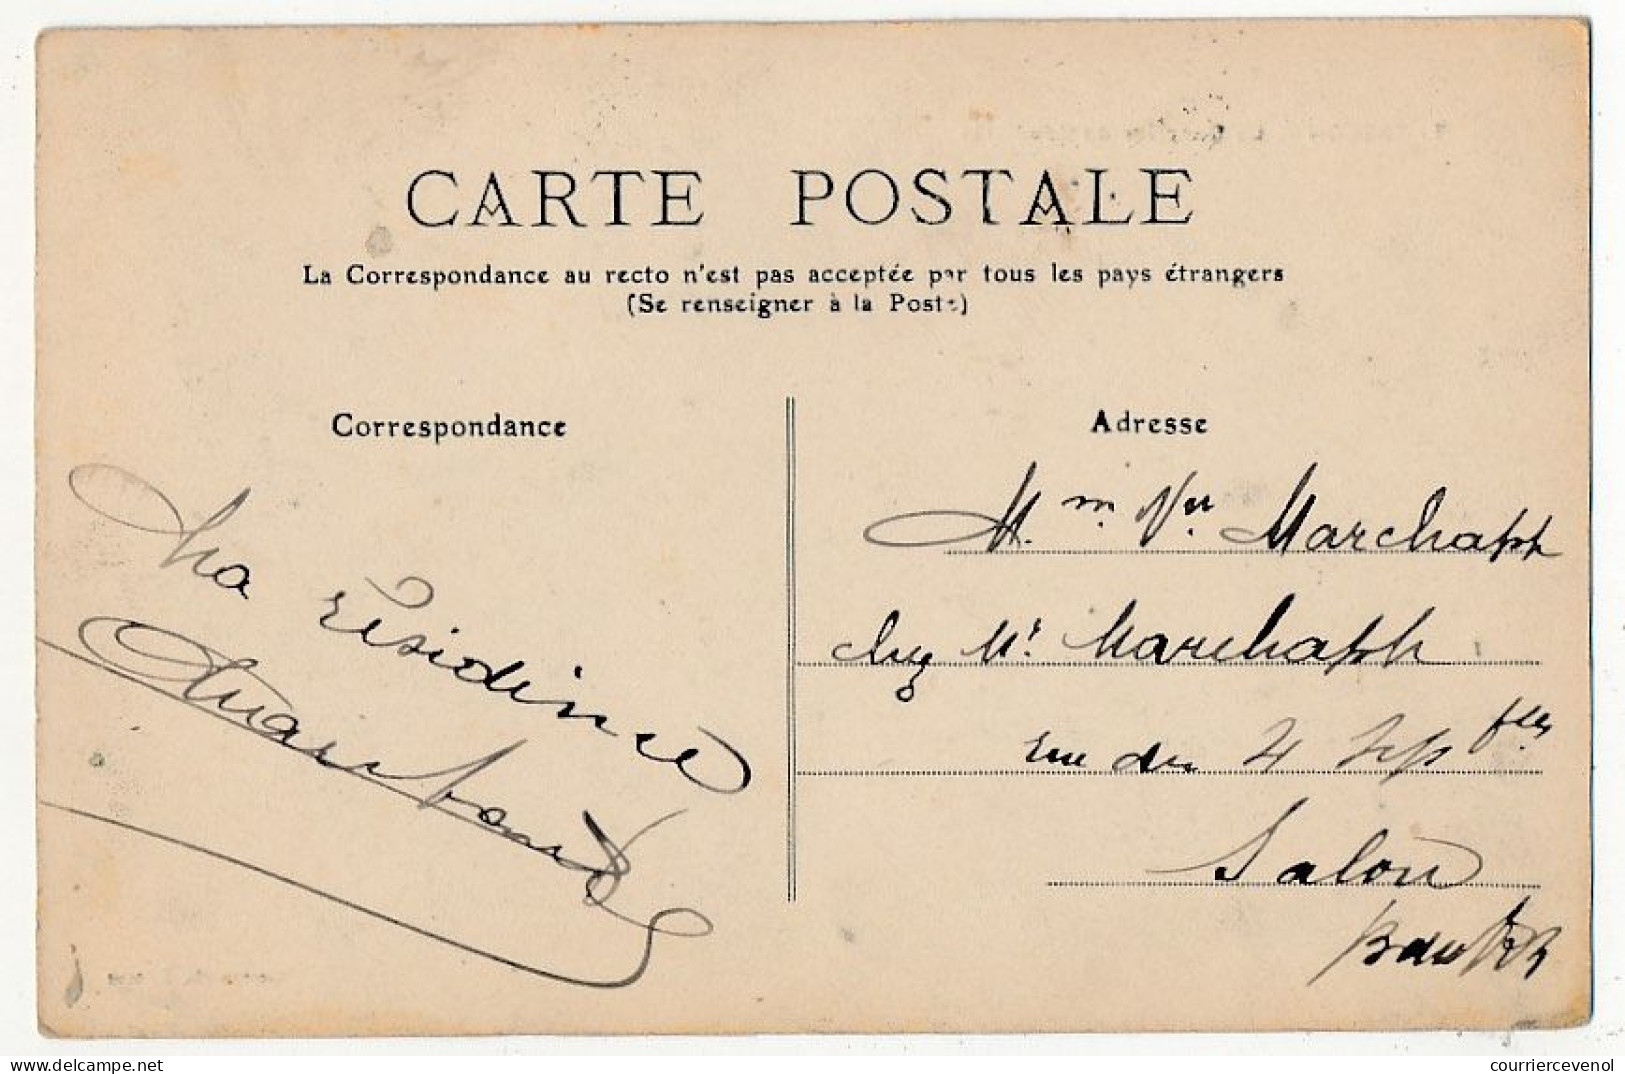 CARTE POSTALE
La Correspondance au recto n'est pas acceptée par tous les pays étrangers
(Se renseigner à la Poste)
Correspondance
Adresse
Ma
résidence
Mm Vve Marchaph
chez Mr Marchaph
rue du 4 7bre
Salon
B du Rh
courriercevenol